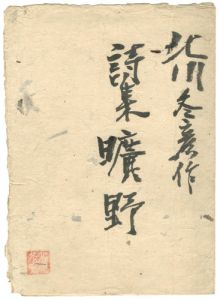 北川冬彦作
詩集曠野